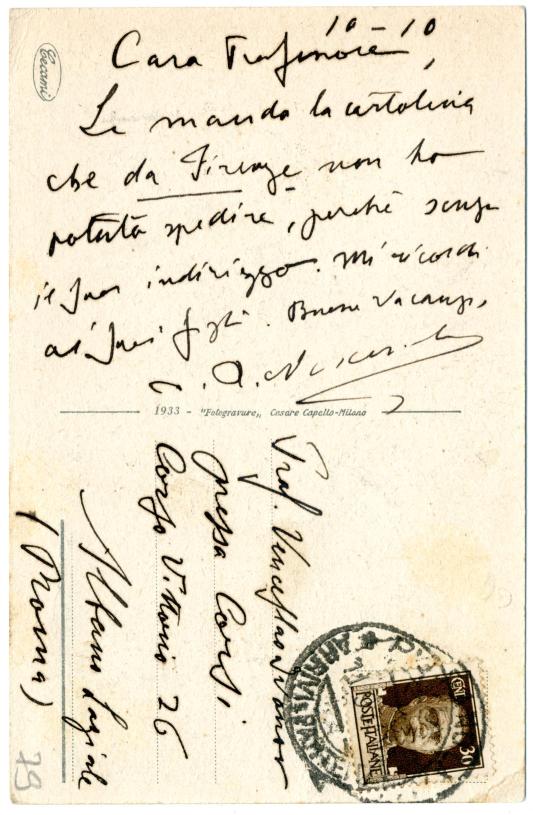 10 – 10
Caro Professore,
Le mando la cartolina
che da Firenze non ho
potuto spedire, perchè senza
il Suo indirizzo. Mi ricordi
ai Suoi figli. Buone vacanze,
Ceccami
1933 - "Fotogravure„ Cesare Capello-Milano
Prof. Venceslao Ivanov
presso Corsi
Corso Vittorio 26
Albano Laziale
(Roma)
CENT. 30
POSTE ITALIANE
79